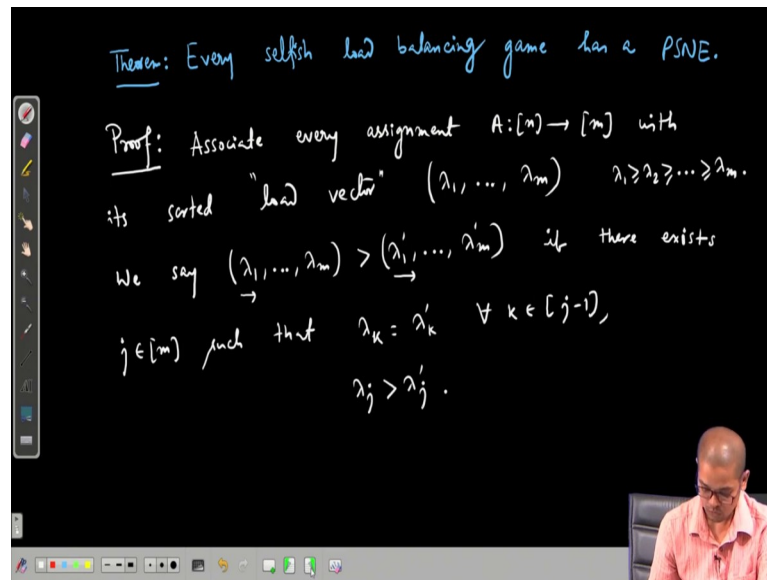 Theorem: Every selfish load balancing game has a PSNE.
Proof: Associate every assignment A:[n] → [m] with
its sorted "load vector" (λ₁, ..., λₘ) λ₁ ≥ λ₂ ≥ ... ≥ λₘ.
We say (λ₁, ..., λₘ) > (λ₁', ..., λₘ') if there exists
j ∈ [m] such that λₖ = λₖ' ∀ k ∈ [j-1],
λⱼ > λⱼ'.